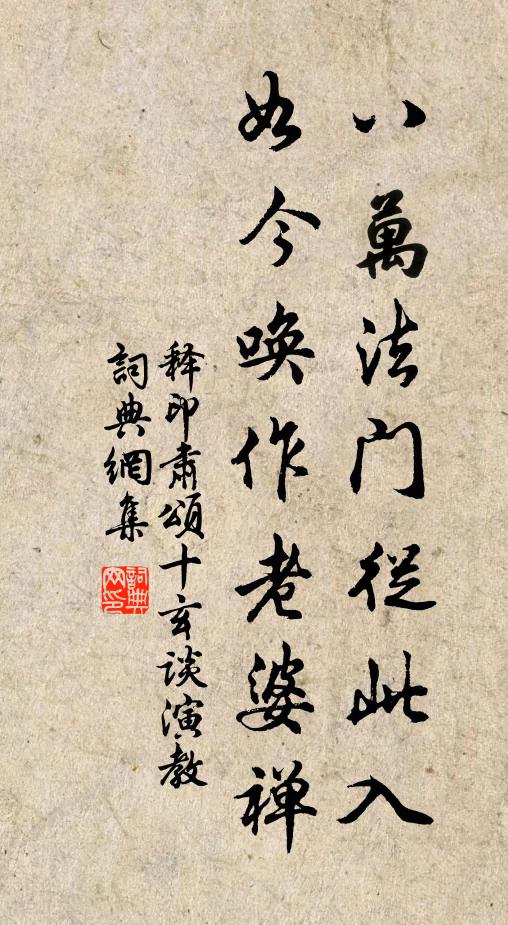 八萬法门従此入
如今唤作老婆禅
释印肅頌十玄谈演教
詞典網集
詞典网印